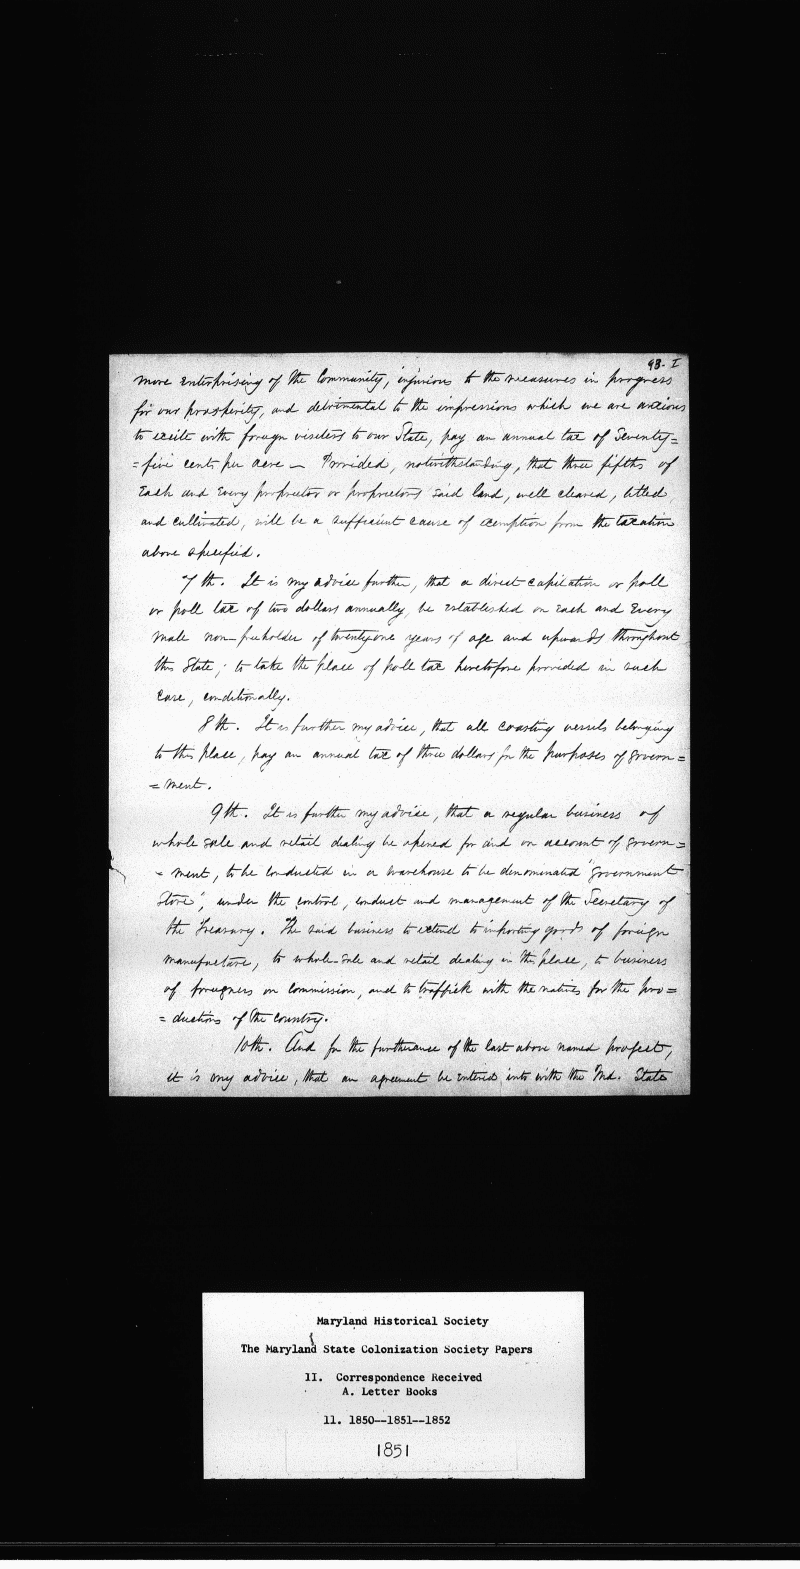 93. I
more enterprising of the Community, injurious to the measures in progress
for our prosperity, and detrimental to the impressions which we are anxious
to excite with foreign visiters to our State, pay an annual tax of Seventy=
=five cents per acre — Provided, notwithstanding, that three fifths of
Each and Every proprietor or proprietors said land, well cleared, titled,
and cultivated, will be a sufficient cause of exemption from the taxation
above specified.
7th. It is my advise further, that a direct capitation or poll
or poll tax of two dollars annually, be established on Each and Every
male non-freeholder of twenty one years of age and upwards throughout
this State; to take the place of poll tax heretofore provided in such
case, conditionally.
8th. It is further my advise, that all coasting vessels belonging
to this place, pay an annual tax of three dollars for the purposes of Govern=
=ment.
9th. It is further my advise, that a regular business of
whole sale and retail dealing be opened for and on account of Govern=
=ment, to be conducted in a warehouse to be denominated "Government
Store", under the control, conduct and management of the Secretary of
the Treasury. The said business to extend to importing goods of foreign
manufacture, to whole-sale and retail dealing in this place, to business
of foreigners on Commission, and to traffick with the natives for the pro=
=ductions of the Country.
10th. And for the furtherance of the last above named project,
it is my advise, that an agreement be entered into with the Md. State
Maryland Historical Society
The Maryland State Colonization Society Papers
II. Correspondence Received
A. Letter Books
11. 1850--1851--1852
1851